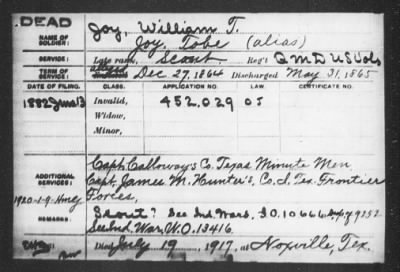 DEAD
NAME OF SOLDIER: Joy, William T.
Joy, Tobe (alias)
SERVICE: Late rank, Scout Reg't Q M D US Vols
TERM OF SERVICE: alleged Dec 27, 1864 Discharged May 31, 1865
DATE OF FILING. CLASS. APPLICATION NO. LAW. CERTIFICATE NO.
1882 June 13 Invalid, 452,029
Widow,
Minor,
Capt. Calloway's Co. Texas Minute Men
ADDITIONAL SERVICES: Capt. James M. Hunter's, Co. I, Tex. Frontier
1920-1-9- Forces,
REMARKS: Scout? See Ind. Wars, I.O. 10666
See Ind. War, W.O. 13416.
Died July 19, 1917, at Noxville, Tex.